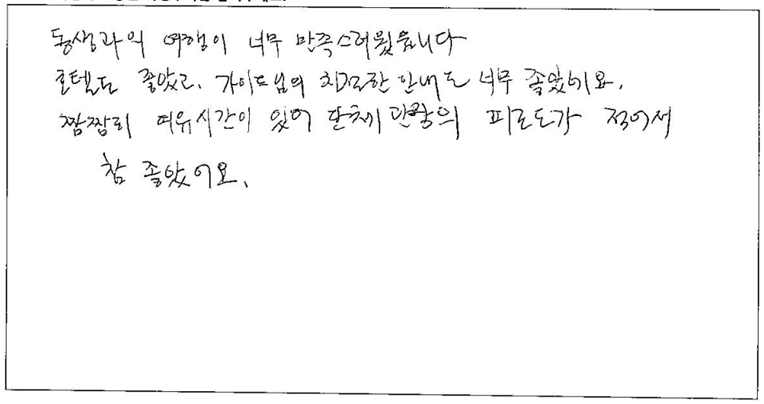 동생과의 여행이 너무 만족스러웠읍니다
호텔도 좋았고, 가이드님의 친절한 안내도 너무 좋았어요.
짬짬히 여유시간이 있어 단체관광의 피로도가 적어서
참 좋았어요.